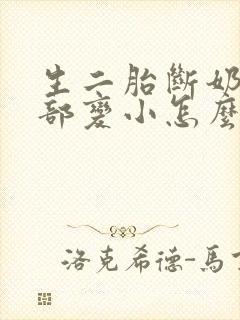 生二胎斷奶
部變小怎麼
洛克希德-馬